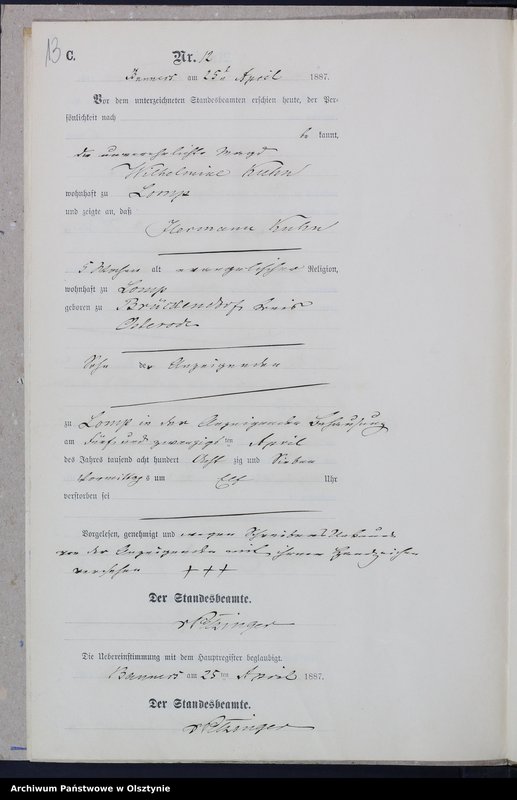 13 C.
Nr. 12
Banners am 25t April 1887.
Vor dem unterzeichneten Standesbeamten erschien heute, der Per-
sönlichkeit nach
be kannt,
die unverehelichte Magd
Wilhelmine Kuhn
wohnhaft zu Lomp
und zeigte an, daß
Hermann Kuhn
5 Wochen alt evangelischer Religion,
wohnhaft zu Lomp
geboren zu Brückendorf, Kreis
Osterode
Sohn der Anzeigenden
zu Lomp in der Anzeigenden Behausung
am fünf und zwanzigsten April
des Jahres tausend acht hundert Acht zig und Sieben
Vormittags um Elf Uhr
verstorben sei
Vorgelesen, genehmigt und wegen Schreibensunkunde
von der Anzeigenden mit ihrem Handzeichen
versehen + + +
Der Standesbeamte.
Die Uebereinstimmung mit dem Hauptregister beglaubigt.
Banners am 25ten April 1887.
Der Standesbeamte.
Archiwum Państwowe w Olsztynie